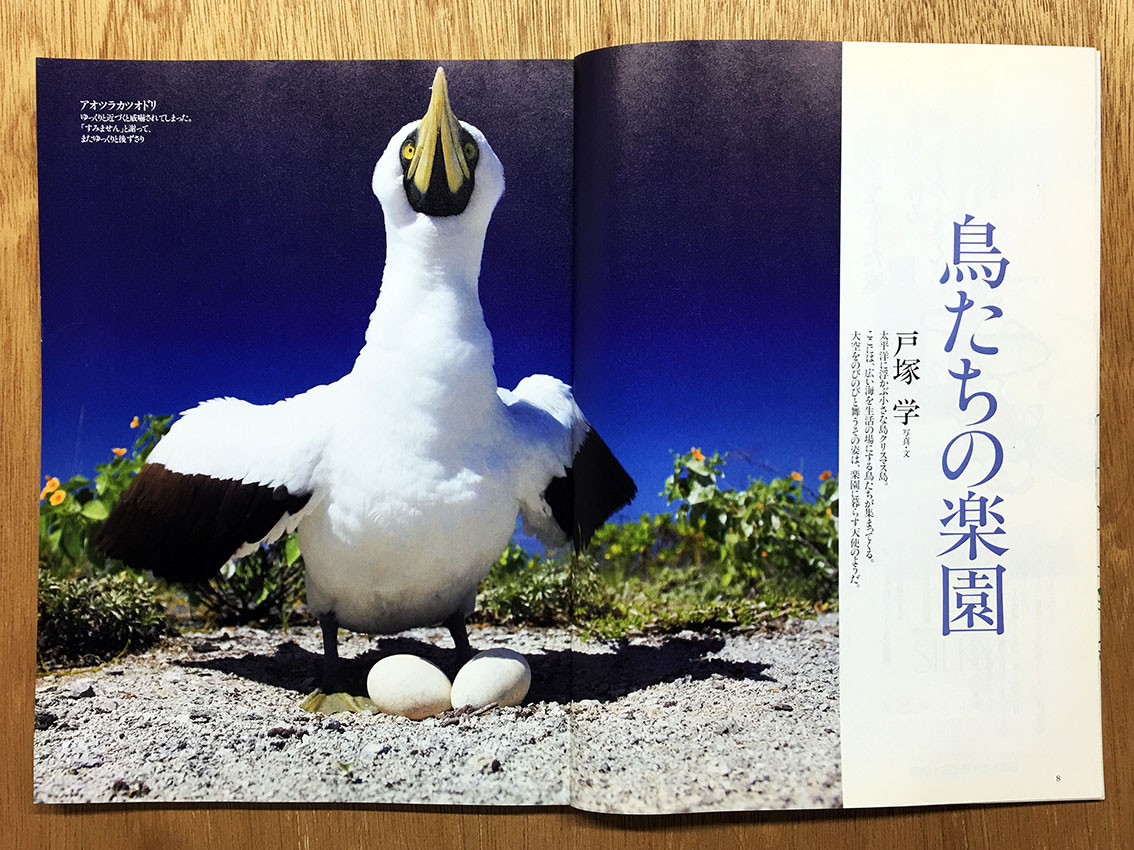 鳥たちの楽園
戸塚 学 写真・文
太平洋に浮かぶ小さな島クリスマス島。
ここには、広い海を生活の場にする鳥たちが集まってくる。
大空をのびのびと舞うその姿は、楽園に暮らす天使のようだ。
アオツラカツオドリ
ゆっくりと近づくと威嚇されてしまった。
「すみません」と謝って、
またゆっくりと後ずさり
8